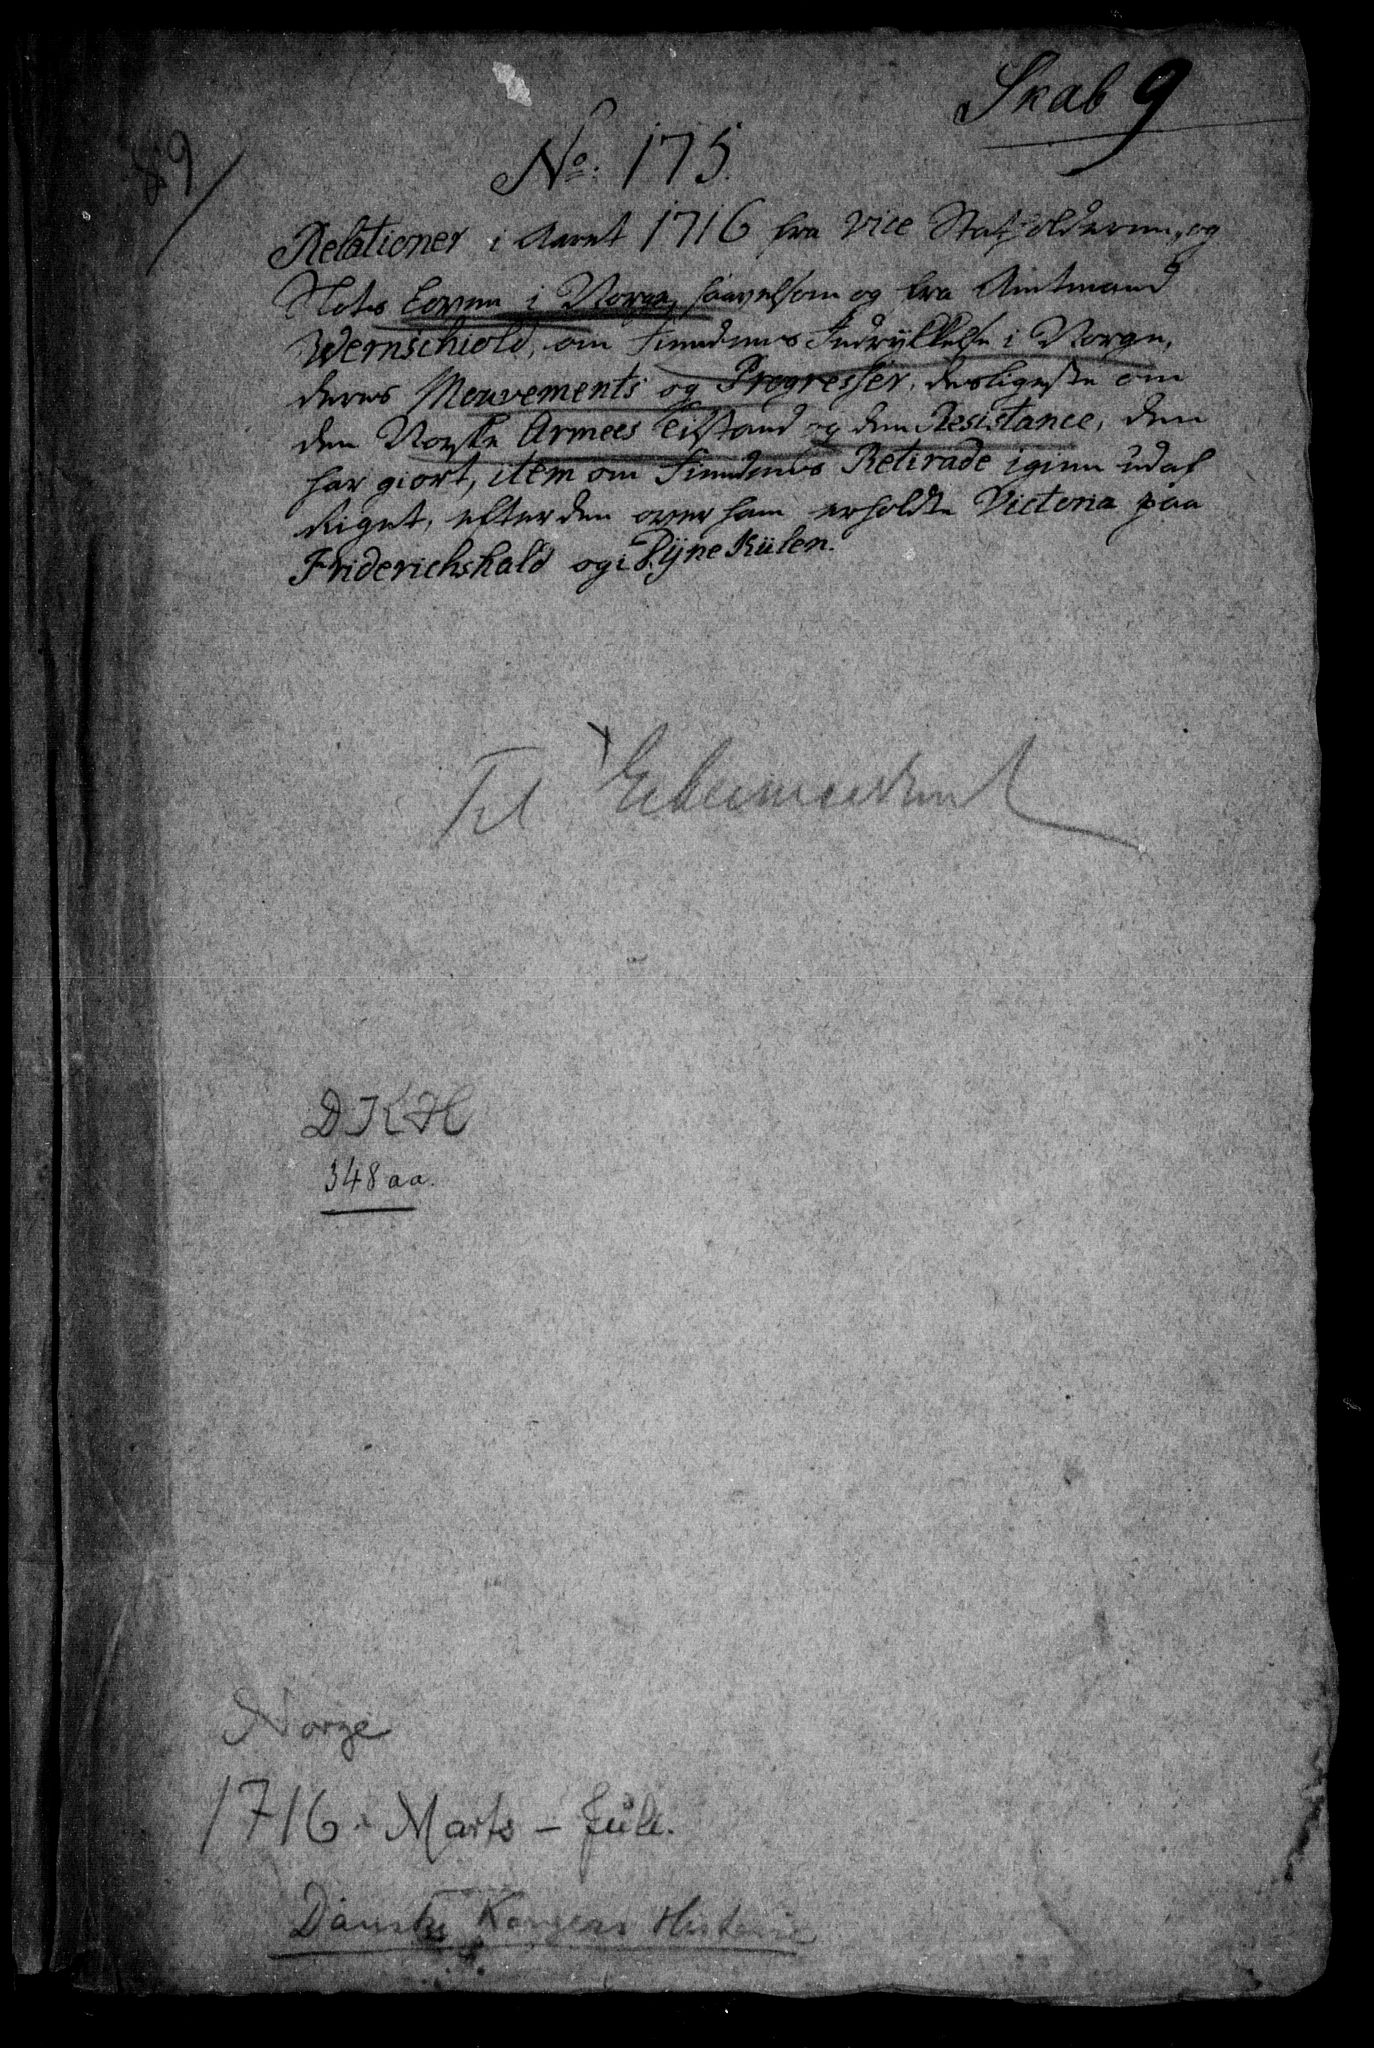 Skab 9
89
No: 175.
Relationer i Aaret 1716 fra Vice Statholderen, og
Slots Loven i Norge, saavelsom og fra Amtmand
Wernschiold, om Fiendens Indrykkelse i Norge,
deres Mouvements og Progresser, desligeste om
den Norske Armees Tilstand og den Resistance, den
har giort, item om Fiendens Retirade igien udaf
Riget, efter den over ham erholdte Victoria paa
Friderichshald og i DyneKülen.
Til
D K H
348 aa.
Norge
1716. Marts - Juli.
Danske Kongers Historie